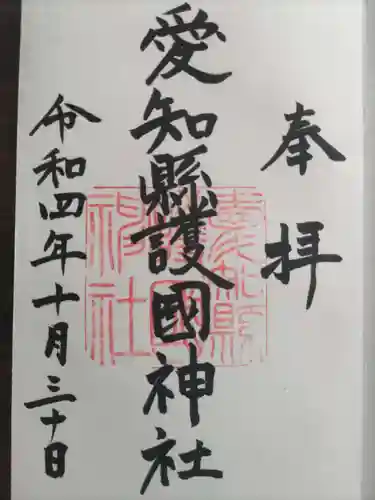 奉拝
愛知縣護國神社
令和四年十月三十日
愛知縣護國神社